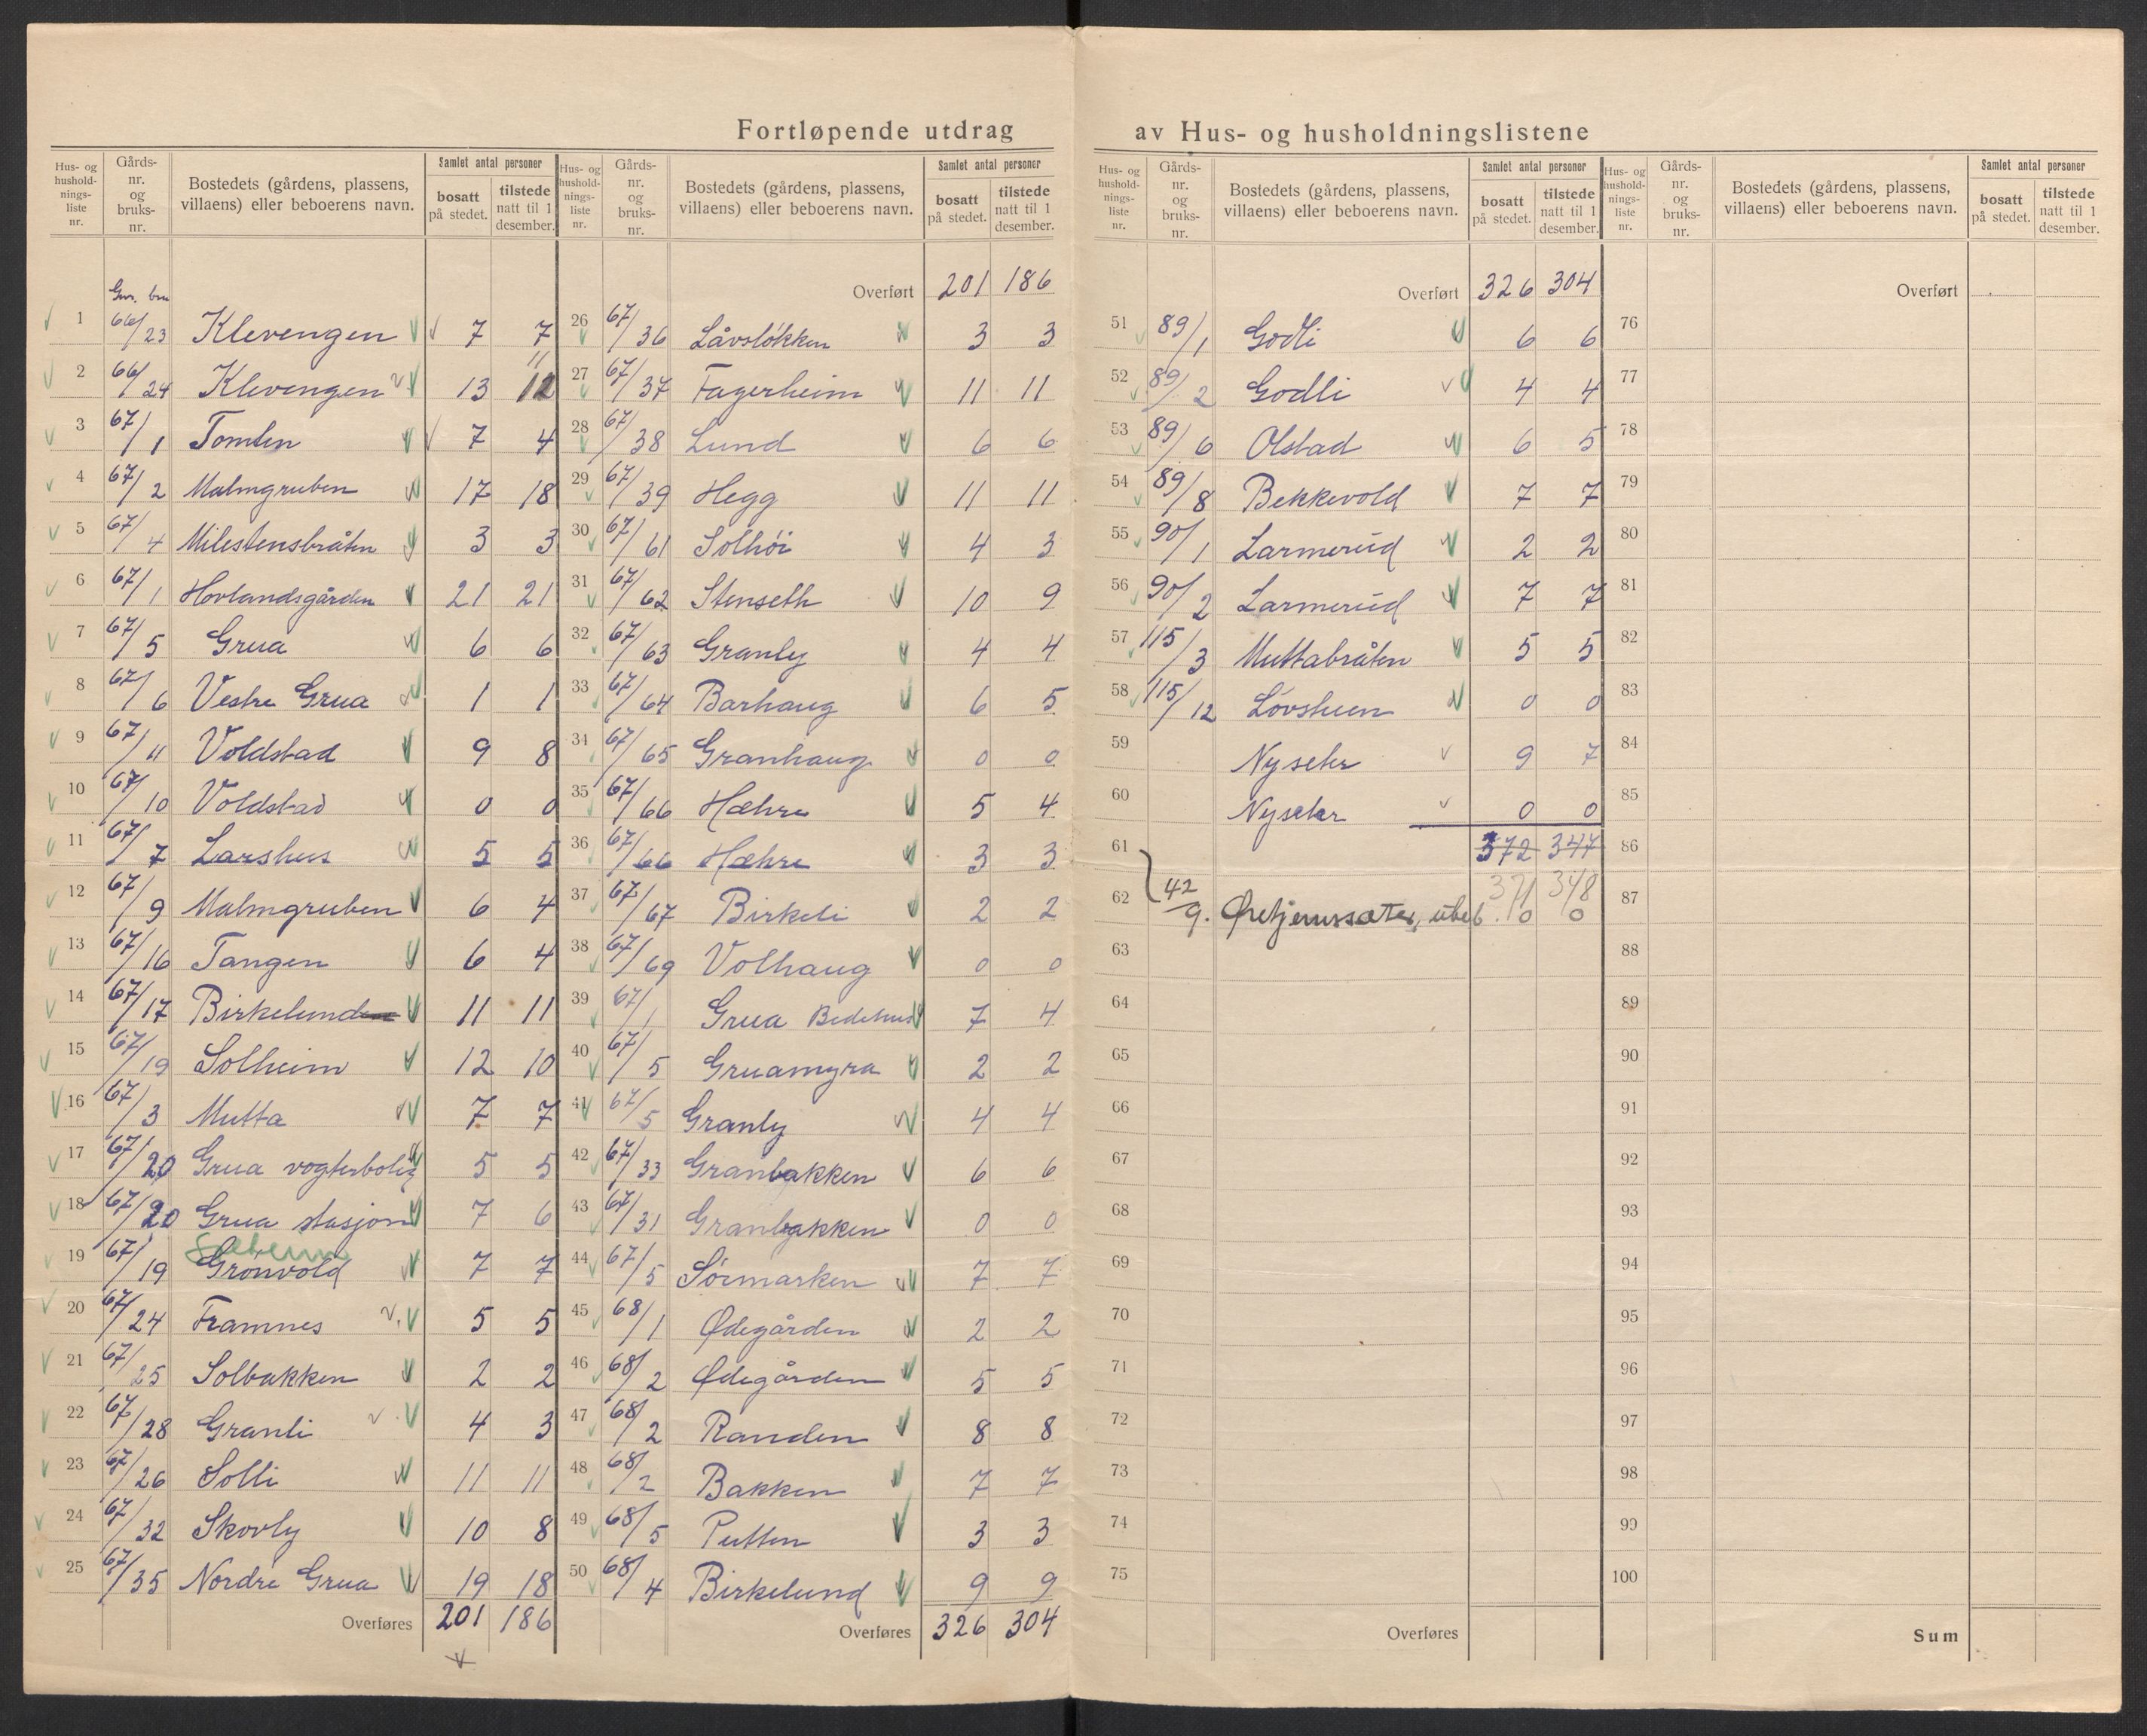 Fortløpende utdrag av Hus- og husholdningslistene
Hus- og hushold-nings-liste nr. Gårds-nr. og bruks-nr. Bostedets (gårdens, plassens, villaens) eller beboerens navn. Samlet antal personer bosatt på stedet. tilstede natt til 1 desember.
Gnr. bnr
1 66/23 Klevengen 7 7
2 66/24 Klevengen 13 12 11
3 67/1 Tomten 7 4
4 67/2 Malmgruben 17 18
5 67/4 Milestensbråten 3 3
6 67/1 Hovlandsgården 21 21
7 67/5 Grua 6 6
8 67/6 Vestre Grua 1 1
9 67/11 Voldstad 9 8
10 67/10 Voldstad 0 0
11 67/7 Larshus 5 5
12 67/9 Malmgruben 6 4
13 67/16 Tangen 6 4
14 67/17 Birkelunden 11 11
15 67/19 Solheim 12 10
16 67/3 Mutta 7 7
17 67/20 Grua vogterbolig 5 5
18 67/20 Grua stasjon 7 6
Solheim
19 67/19 Grønvold 7 7
20 67/24 Framnes 5 5
21 67/25 Solbakken 2 2
22 67/28 Granli 4 3
23 67/26 Solli 11 11
24 67/32 Skovly 10 8
25 67/35 Nordre Grua 19 18
Overføres 201 186
Hus- og hushold-nings-liste nr. Gårds-nr. og bruks-nr. Bostedets (gårdens, plassens, villaens) eller beboerens navn. Samlet antal personer bosatt på stedet. tilstede natt til 1 desember.
Overført 201 186
26 67/36 Låvsløkken 3 3
27 67/37 Fagerheim 11 11
28 67/38 Lund 6 6
29 67/39 Hegg 11 11
30 67/61 Solhøi 4 3
31 67/62 Stenseth 10 9
32 67/63 Granly 4 4
33 67/64 Barhaug 6 5
34 67/65 Granhaug 0 0
35 67/66 Hæhre 5 4
36 67/66 Hæhre 3 3
37 67/67 Birkeli 2 2
38 67/69 Volhaug 0 0
39 67/1 Grua Bedehus 7 4
40 67/5 Gruamyra 2 2
41 67/5 Granly 4 4
42 67/33 Granbakken 6 6
43 67/31 Granbakken 0 0
44 67/5 Sørmarken 7 7
45 68/1 Ødegården 2 2
46 68/2 Ødegården 5 5
47 68/2 Randen 8 8
48 68/2 Bakken 7 7
49 68/5 Putten 3 3
50 68/4 Birkelund 9 9
Overføres 326 304
Hus- og hushold-nings-liste nr. Gårds-nr. og bruks-nr. Bostedets (gårdens, plassens, villaens) eller beboerens navn. Samlet antal personer bosatt på stedet. tilstede natt til 1 desember.
Overført 326 304
51 89/1 Godli 6 6
52 89/2 Godli 4 4
53 89/6 Olstad 6 5
54 89/8 Bekkevold 7 7
55 90/1 Larmerud 2 2
56 90/2 Larmerud 7 7
57 115/3 Muttabråten 5 5
58 115/12 Løvstuen 0 0
59 Nyseter 9 7
60 Nyseter 0 0
61 372 347
371 348
62 42/9. Øretjernssæter, ubeb. 0 0
63
64
65
66
67
68
69
70
71
72
73
74
75
Overføres
Hus- og hushold-nings-liste nr. Gårds-nr. og bruks-nr. Bostedets (gårdens, plassens, villaens) eller beboerens navn. Samlet antal personer bosatt på stedet. tilstede natt til 1 desember.
Overført
76
77
78
79
80
81
82
83
84
85
86
87
88
89
90
91
92
93
94
95
96
97
98
99
100
Sum